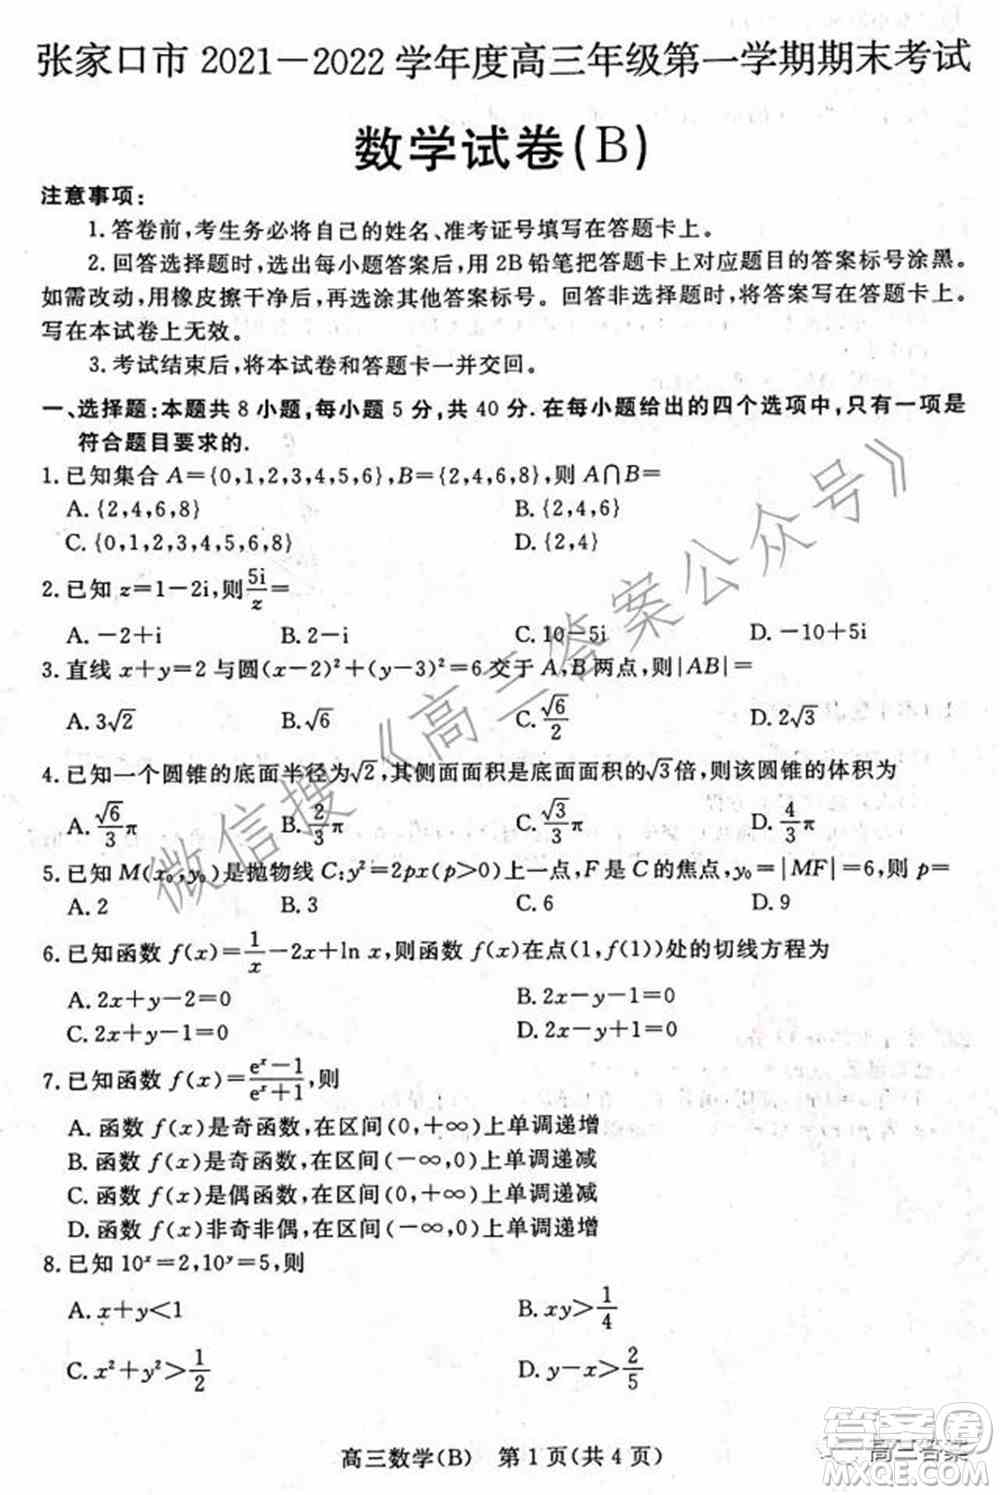 张家口市 2021-2022 学年度高三年级第一学期期末考试
数学试卷(B)
注意事项:
1.答卷前,考生务必将自己的姓名、准考证号填写在答题卡上。
2.回答选择题时,选出每小题答案后,用 2B 铅笔把答题卡上对应题目的答案标号涂黑。
如需改动,用橡皮擦干净后,再选涂其他答案标号。回答非选择题时,将答案写在答题卡上。
写在本试卷上无效。
3.考试结束后,将本试卷和答题卡一并交回。
一、选择题:本题共 8 小题,每小题 5 分,共 40 分.在每小题给出的四个选项中,只有一项是
符合题目要求的.
1.已知集合 A={0,1,2,3,4,5,6},B={2,4,6,8},则 A∩B=
A.{2,4,6,8} B.{2,4,6}
C.{0,1,2,3,4,5,6,8} D.{2,4}
2.已知 z=1-2i,则5i/z=
A.-2+i B.2-i C.10-5i D.-10+5i
3.直线 x+y=2 与圆(x-2)²+(y-3)²=6 交于 A,B 两点,则|AB|=
A.3√2 B.√6 C.√6/2 D.2√3
4.已知一个圆锥的底面半径为√2,其侧面面积是底面面积的√3倍,则该圆锥的体积为
A.√6/3 π B.2/3 π C.√3/3 π D.4/3 π
5.已知 M(x₀,y₀)是抛物线 C:y²=2px(p>0)上一点,F 是 C 的焦点,y₀=|MF|=6,则 p=
A.2 B.3 C.6 D.9
6.已知函数 f(x)=1/x-2x+ln x,则函数 f(x)在点(1,f(1))处的切线方程为
A.2x+y-2=0 B.2x-y-1=0
C.2x+y-1=0 D.2x-y+1=0
7.已知函数 f(x)=(eˣ-1)/(eˣ+1),则
A.函数 f(x)是奇函数,在区间(0,+∞)上单调递增
B.函数 f(x)是奇函数,在区间(-∞,0)上单调递减
C.函数 f(x)是偶函数,在区间(-∞,0)上单调递减
D.函数 f(x)非奇非偶,在区间(-∞,0)上单调递增
8.已知 10ˣ=2,10ʸ=5,则
A.x+y<1 B.xy>1/4
C.x²+y²>1/2 D.y-x>2/5
高三数学(B) 第 1 页(共 4 页)
微信搜《高三答案公众号》
高三答案
答案圈
MXQE.COM